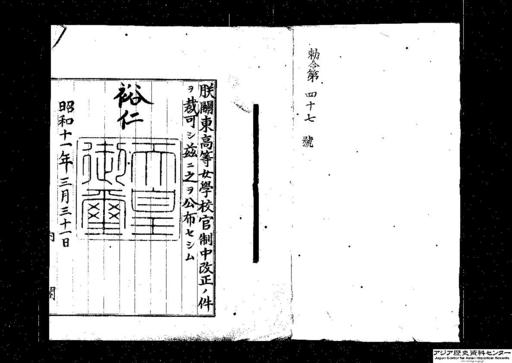 勅令第四十七號
朕關東高等女學校官制中改正ノ件
ヲ裁可シ茲ニ之ヲ公布セシム
裕仁
天皇
御璽
昭和十一年三月三十一日
内閣
アジア歴史資料センター
Japan Center for Asian Historical Records